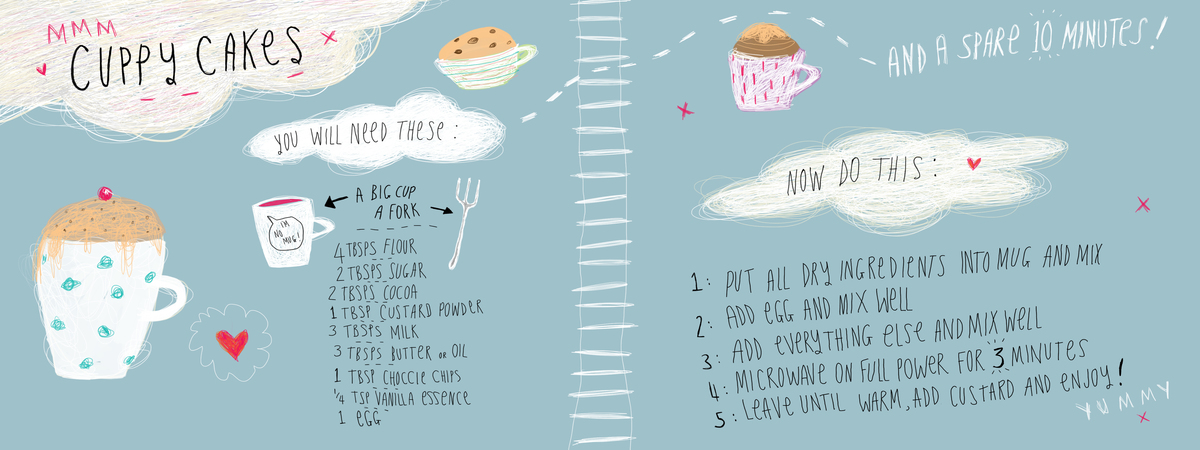 MMM
CUPPY CAKES
YOU WILL NEED THESE:
A BIG CUP
A FORK
I'M
NO
MUG!
4 TBSPS FLOUR
2 TBSPS SUGAR
2 TBSPS COCOA
1 TBSP CUSTARD POWDER
3 TBSPS MILK
3 TBSPS BUTTER OR OIL
1 TBSP CHOCCIE CHIPS
1/4 TSP VANILLA ESSENCE
1 EGG
AND A SPARE 10 MINUTES!
NOW DO THIS:
1: PUT ALL DRY INGREDIENTS INTO MUG AND MIX
2: ADD EGG AND MIX WELL
3: ADD EVERYTHING ELSE AND MIX WELL
4: MICROWAVE ON FULL POWER FOR 3 MINUTES
5: LEAVE UNTIL WARM, ADD CUSTARD AND ENJOY!
YUMMY